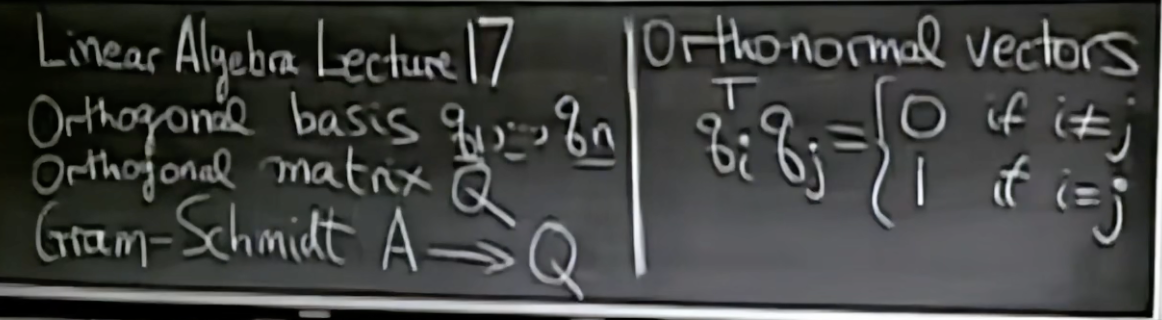 Linear Algebra Lecture 17
Orthogonal basis q₁, ..., qₙ
Orthogonal matrix Q
Gram-Schmidt A → Q
Orthonormal vectors
qᵢᵀqⱼ = { 0 if i≠j
1 if i=j